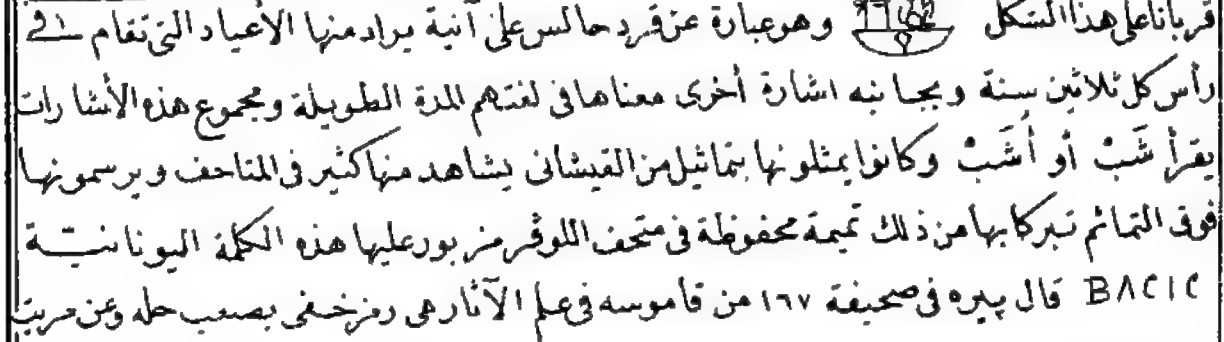 قرباناعلى هذا الشكل وهو عبارة عن قرد جالس على آنية يراد منها الأعياد التى تقام فى
رأس كل ثلاثين سنة وبجانبه اشارة أخرى معناها فى لغتهم المدة الطويلة ومجموع هذه الأشارات
يقرأ شَبْ أو أُشَبْ وكانوا يمثلونها بتماثيل من القيشانى يشاهد منها كثير فى المتاحف ويرسمونها
فوق التمائم تبركا بها من ذلك تميمة محفوظة فى متحف اللوڤر مزبور عليها هذه الكلمة اليونانية
BACIC قال پيره فى صحيفة ١٦٧ من قاموسه فى علم الآثار هى رمز خفى يصعب حله وعن